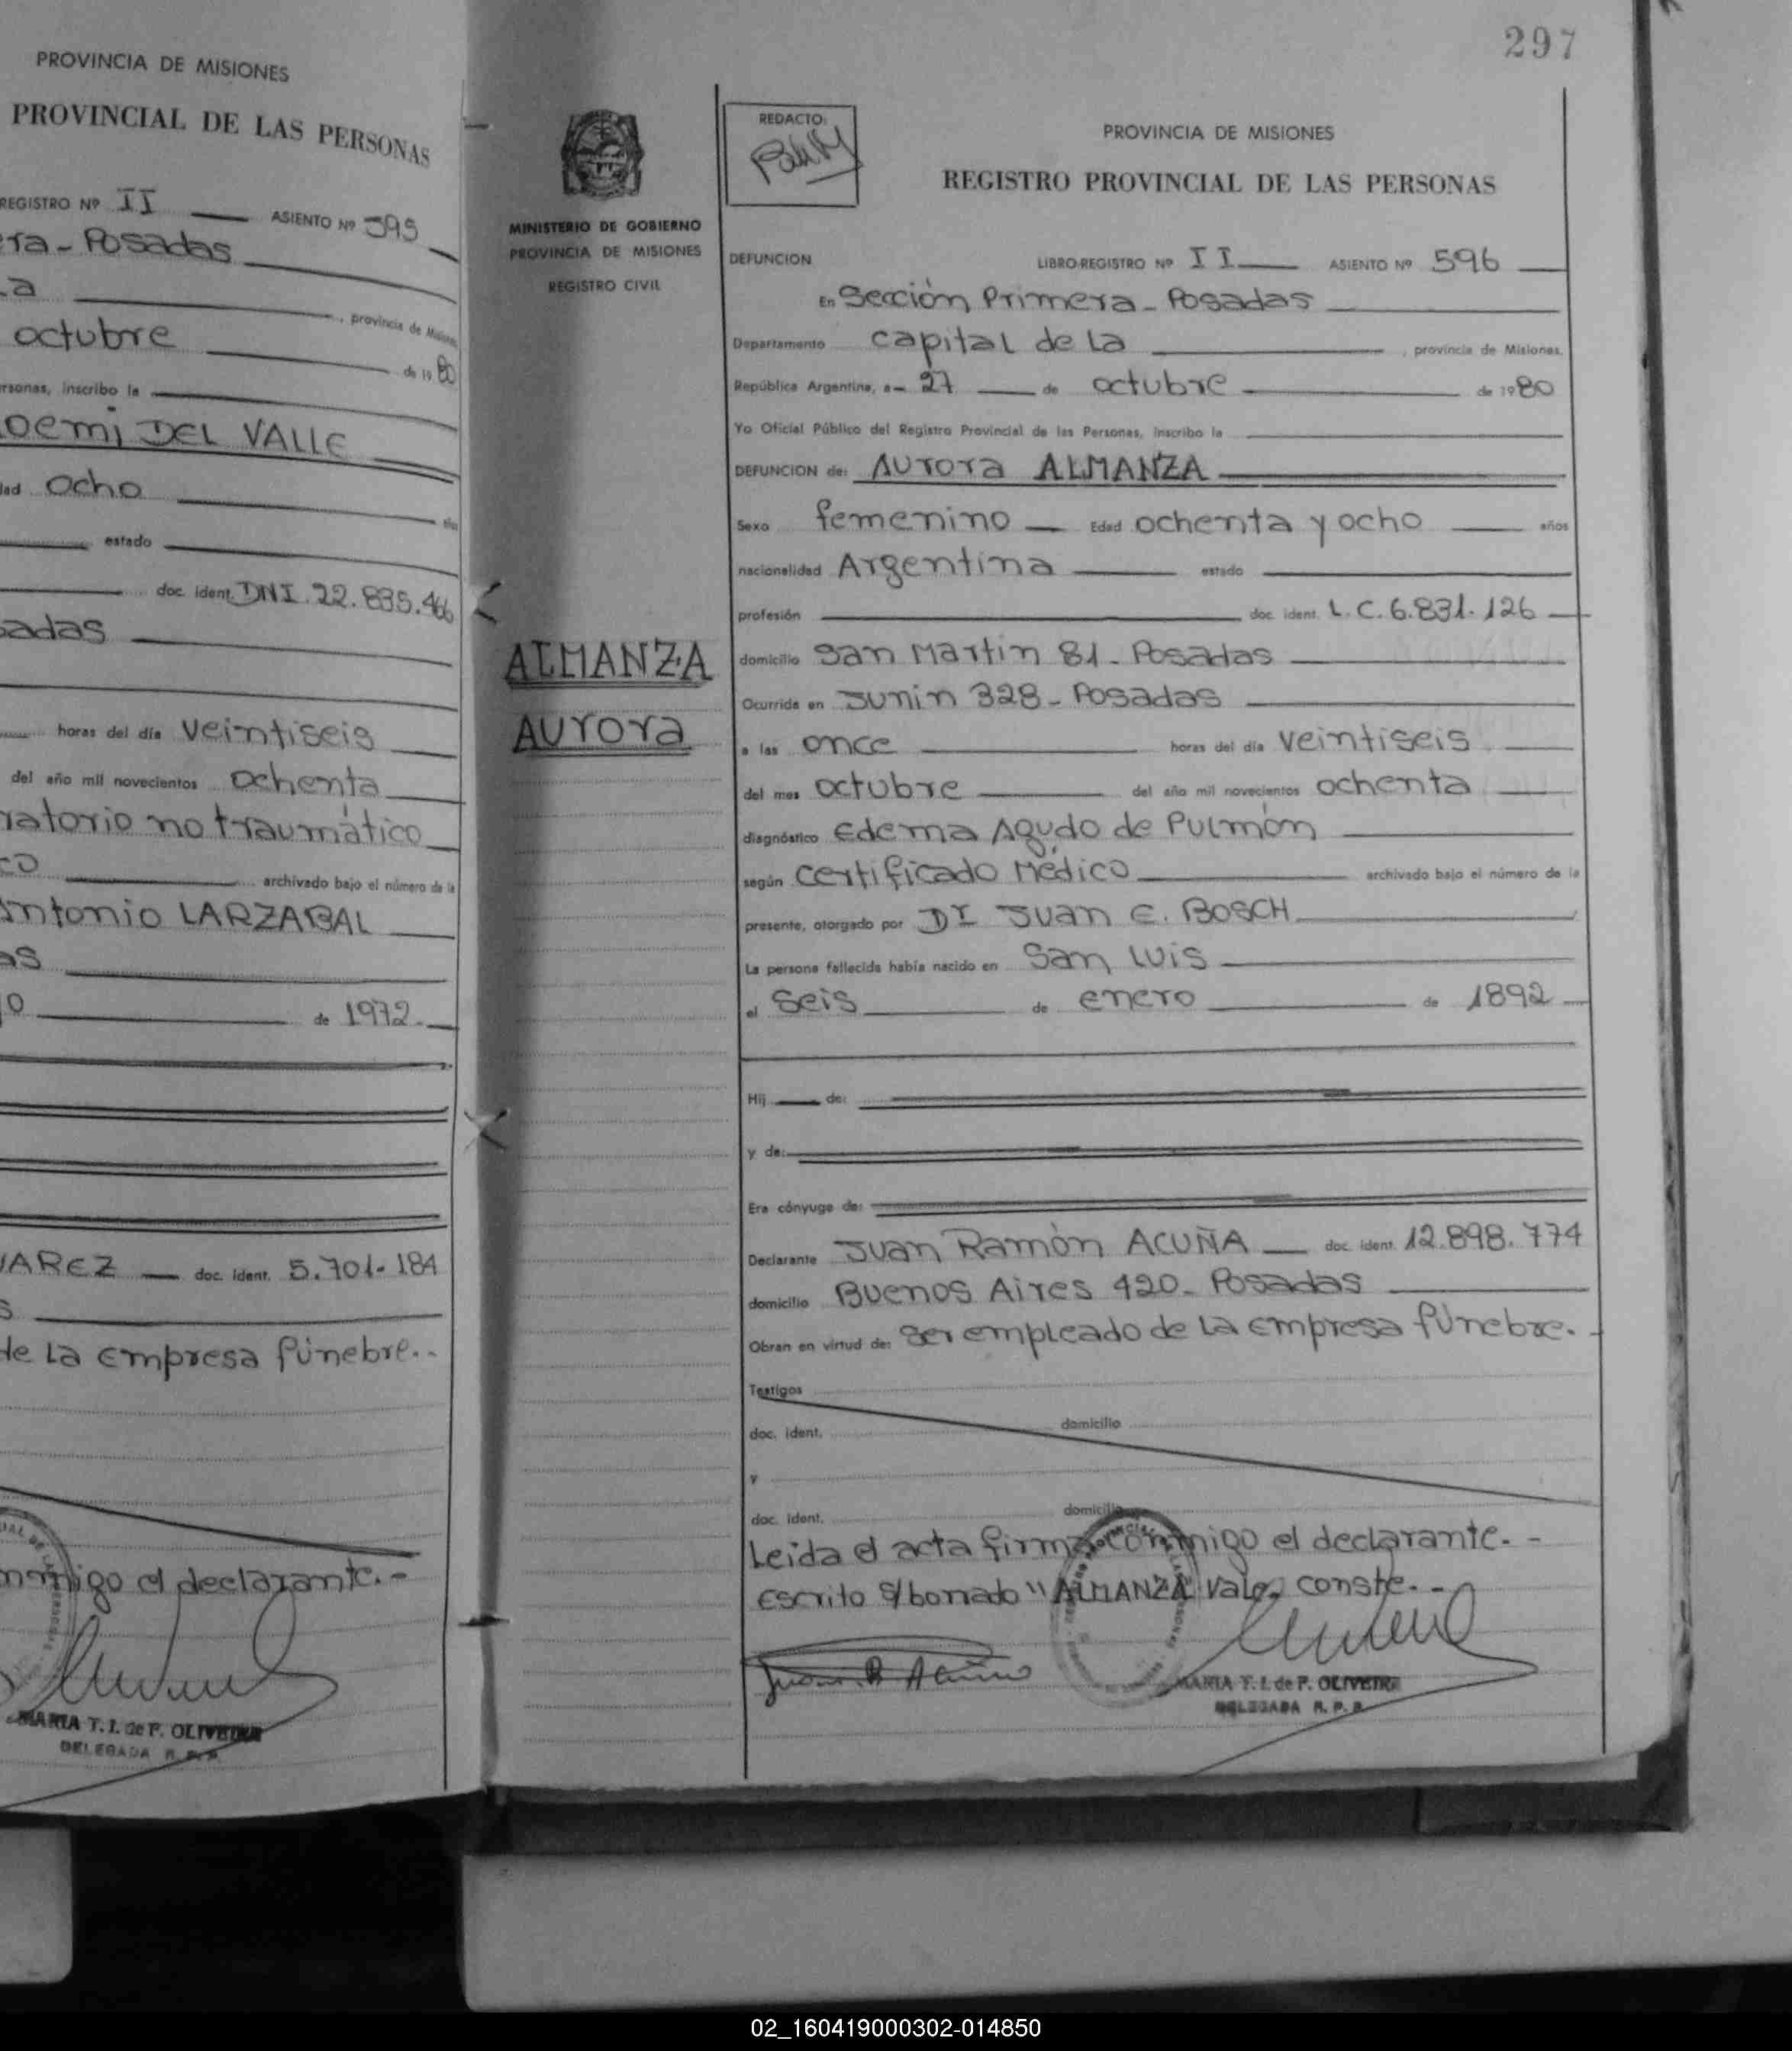 PROVINCIA DE MISIONES
PROVINCIAL DE LAS PERSONAS
REGISTRO Nº II ASIENTO Nº 595
era - Posadas
La , provincia de Misiones
octubre de 1980
Personas, inscribo la
Noemi DEL VALLE
dad ocho años
estado
doc. ident. DNI. 22.835.466
sadas
horas del día veintiseis
del año mil novecientos ochenta
ratorio no traumático
co archivado bajo el número de la
Antonio LARZABAL
as
o de 1972.
UAREZ doc. ident. 5.701.184
s
de La Empresa fúnebre.-
conmigo el declarante.-
MARIA T. I. de F. OLIVEIRA
DELEGADA R. P. P.
297
MINISTERIO DE GOBIERNO
PROVINCIA DE MISIONES
REGISTRO CIVIL
ALMANZA
Aurora
REDACTO:
PROVINCIA DE MISIONES
REGISTRO PROVINCIAL DE LAS PERSONAS
DEFUNCION LIBRO-REGISTRO Nº II ASIENTO Nº 596
En Sección Primera - Posadas
Departamento capital de La , provincia de Misiones,
República Argentina, a 27 de octubre de 1980
Yo Oficial Público del Registro Provincial de las Personas, inscribo la
DEFUNCION de: Aurora ALMANZA
Sexo femenino Edad ochenta y ocho años
nacionalidad Argentina estado
profesión doc. ident. L.C. 6.831.126
domicilio San Martin 81 - Posadas
Ocurrida en Junin 328 - Posadas
a las once horas del día veintiseis
del mes octubre del año mil novecientos ochenta
diagnóstico Edema Agudo de Pulmón
según certificado Médico archivado bajo el número de la
presente, otorgado por Dr Juan E. BOSCH
La persona fallecida había nacido en San Luis
el seis de enero de 1892
Hij de:
y de:
Era cónyuge de:
Declarante Juan Ramón ACUÑA doc. ident. 12.898.774
domicilio Buenos Aires 420 - Posadas
Obran en virtud de: ser empleado de La Empresa fúnebre.-
Testigos
doc. ident. domicilio
y
doc. ident. domicilio
Leida el acta firma conmigo el declarante.-
Escrito s/borrado "ALMANZA Vale, conste.-
Juan R Acuña
MARIA T. I. de F. OLIVEIRA
DELEGADA R. P. P.
02_160419000302-014850